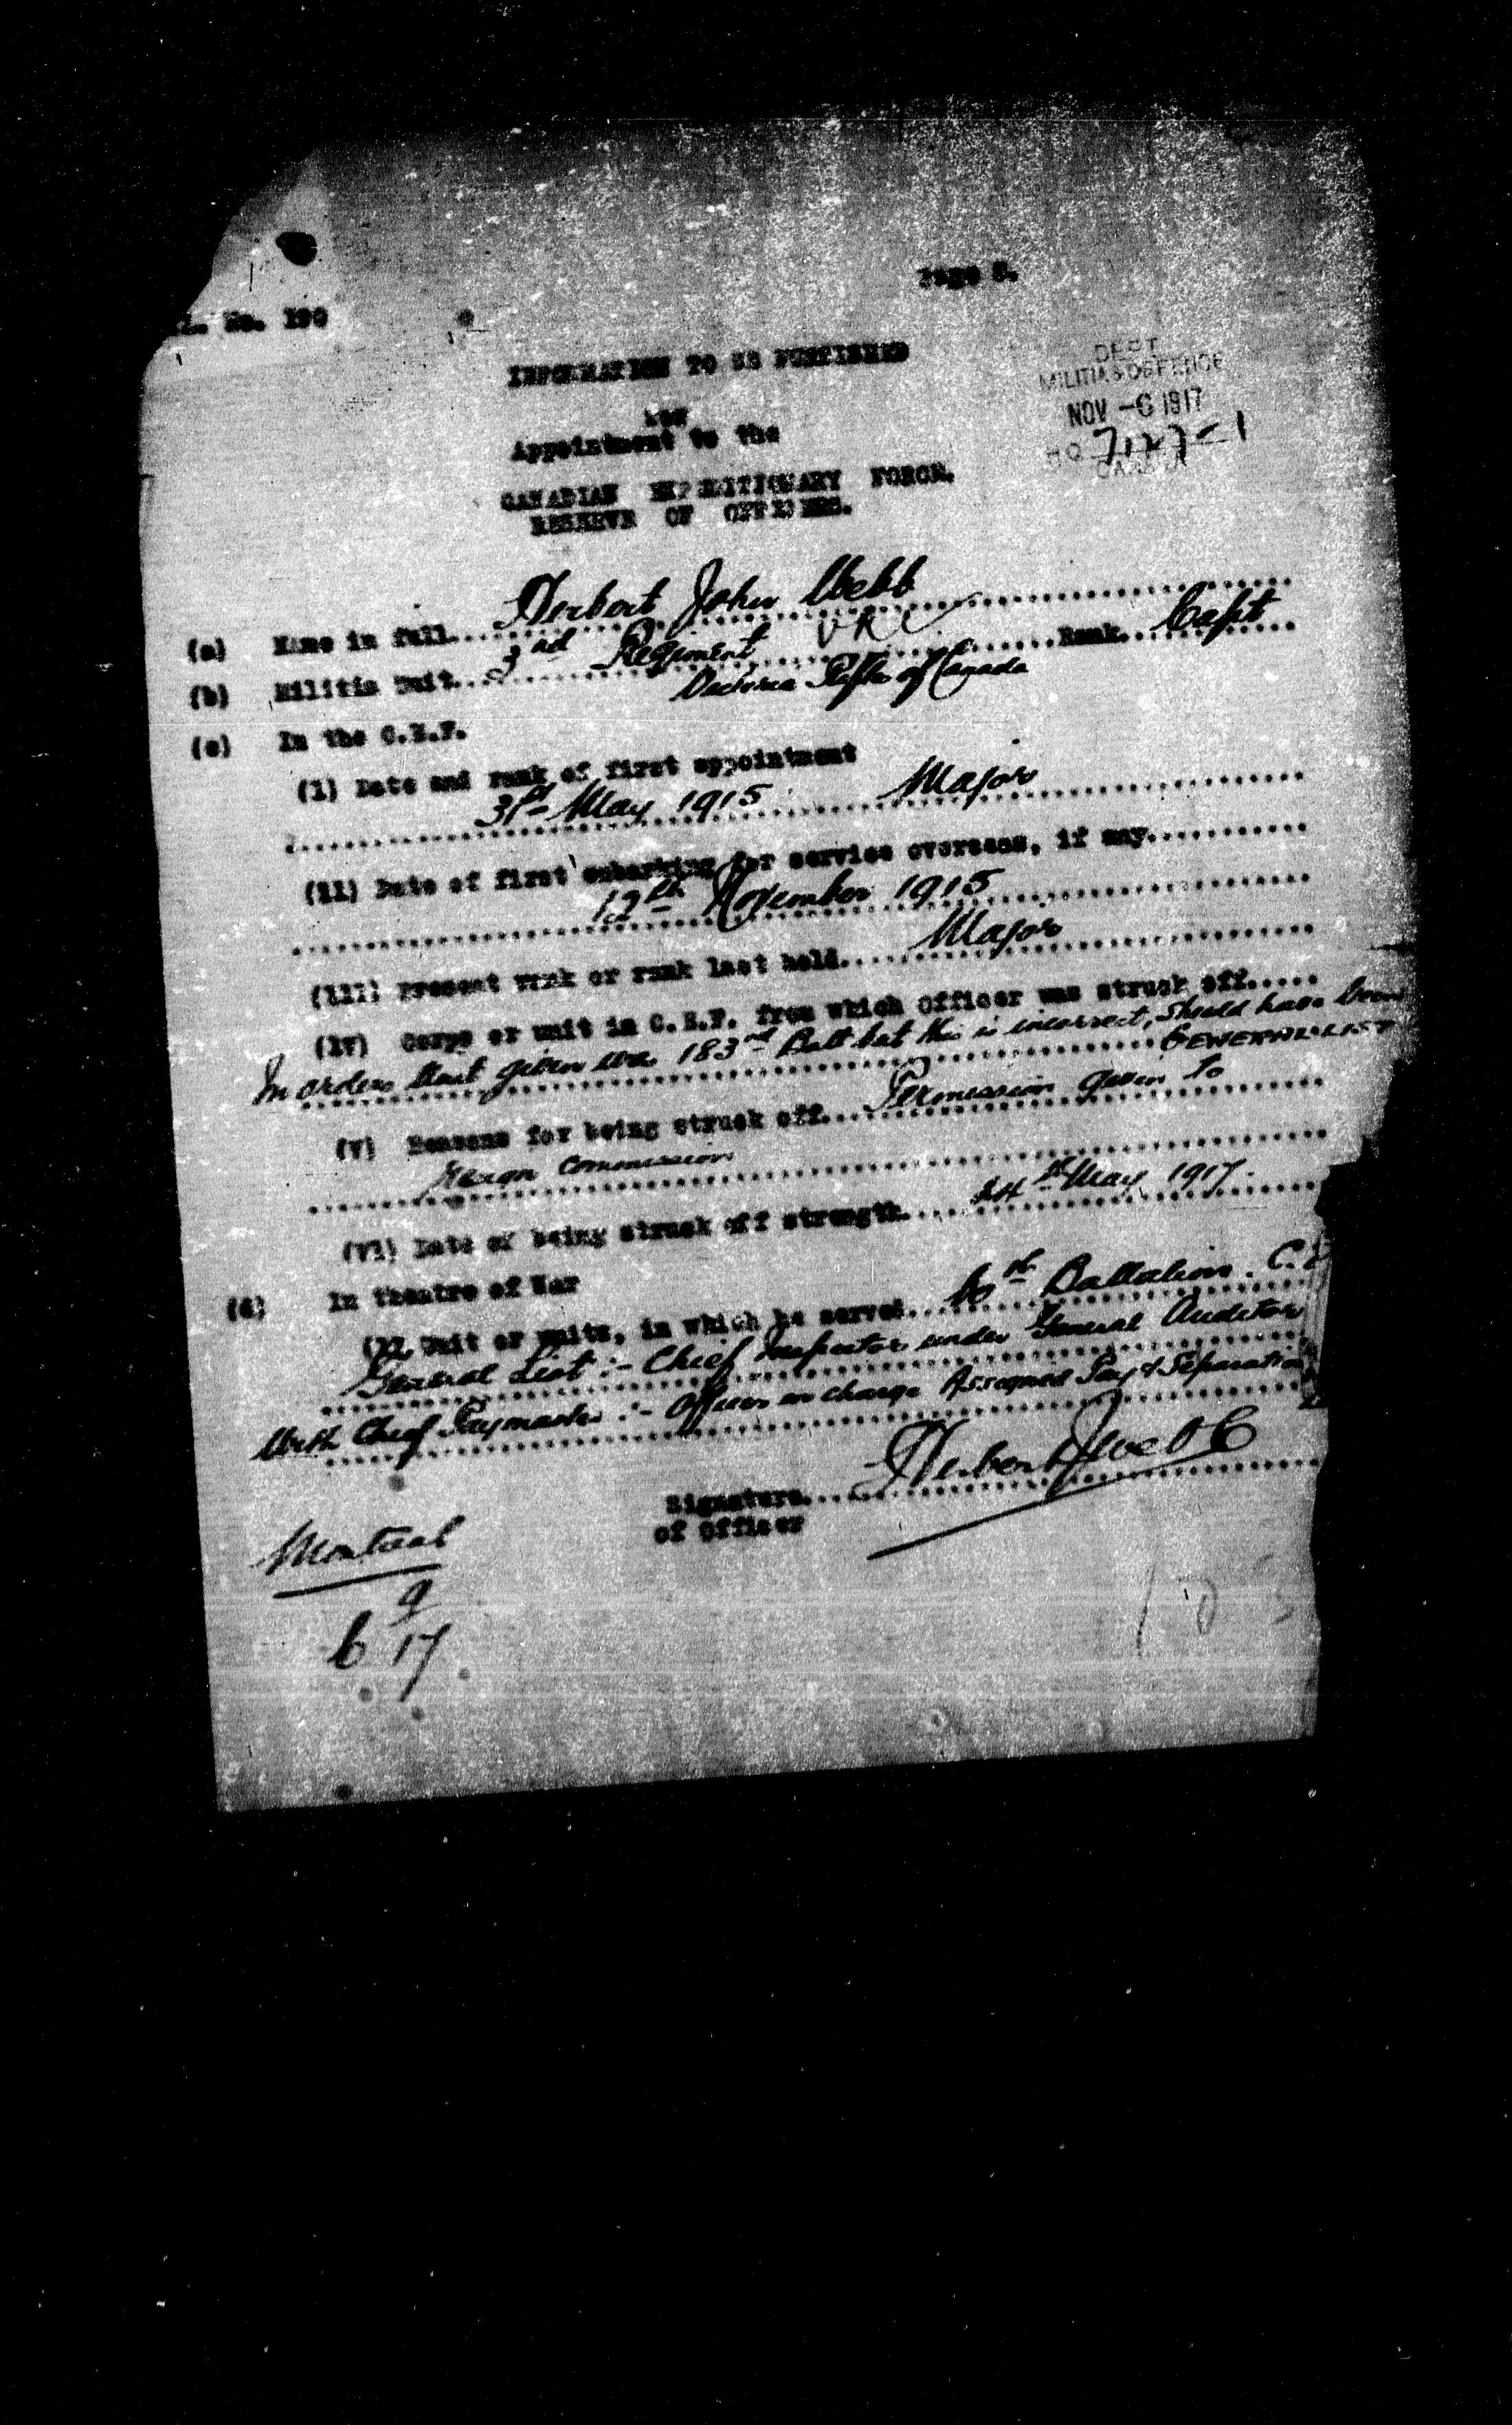 Page 2.
No. 190
INFORMATION TO BE FURNISHED
DEPT.
MILITIA & DEFENCE
NOV -6 1917
CANADA
for
Appointment to the
CANADIAN EXPEDITIONARY FORCE.
RESERVE OF OFFICERS.
(a) Name in full....Herbert John Webb
(b) Militia Unit....3rd Regiment V R C Rank..Capt
Victoria Rifles of Canada
(c) In the C.E.F.
(i) Date and rank of first appointment
31st May 1915 Major
(ii) Date of first embarking for service overseas, if any...........
12th November 1915
(iii) Present rank or rank last held....Major
(iv) Corps or unit in C.E.F. from which officer was struck off.....
In orders Unit given was 183rd Batt but this is incorrect, should have been
GENERAL LIST
(v) Reasons for being struck off....Permission given to
resign Commission
(vi) Date of being struck off strength....24th May 1917.
(d) In theatre of War
(i) Unit or units, in which he served....60th Battalion. C.E
General List :- Chief Inspector under General Auditor
With Chief Paymaster :- Officer in charge Assigned Pay & Separation
Signature....Herbert J Webb
of Officer
Montreal
9
6 17